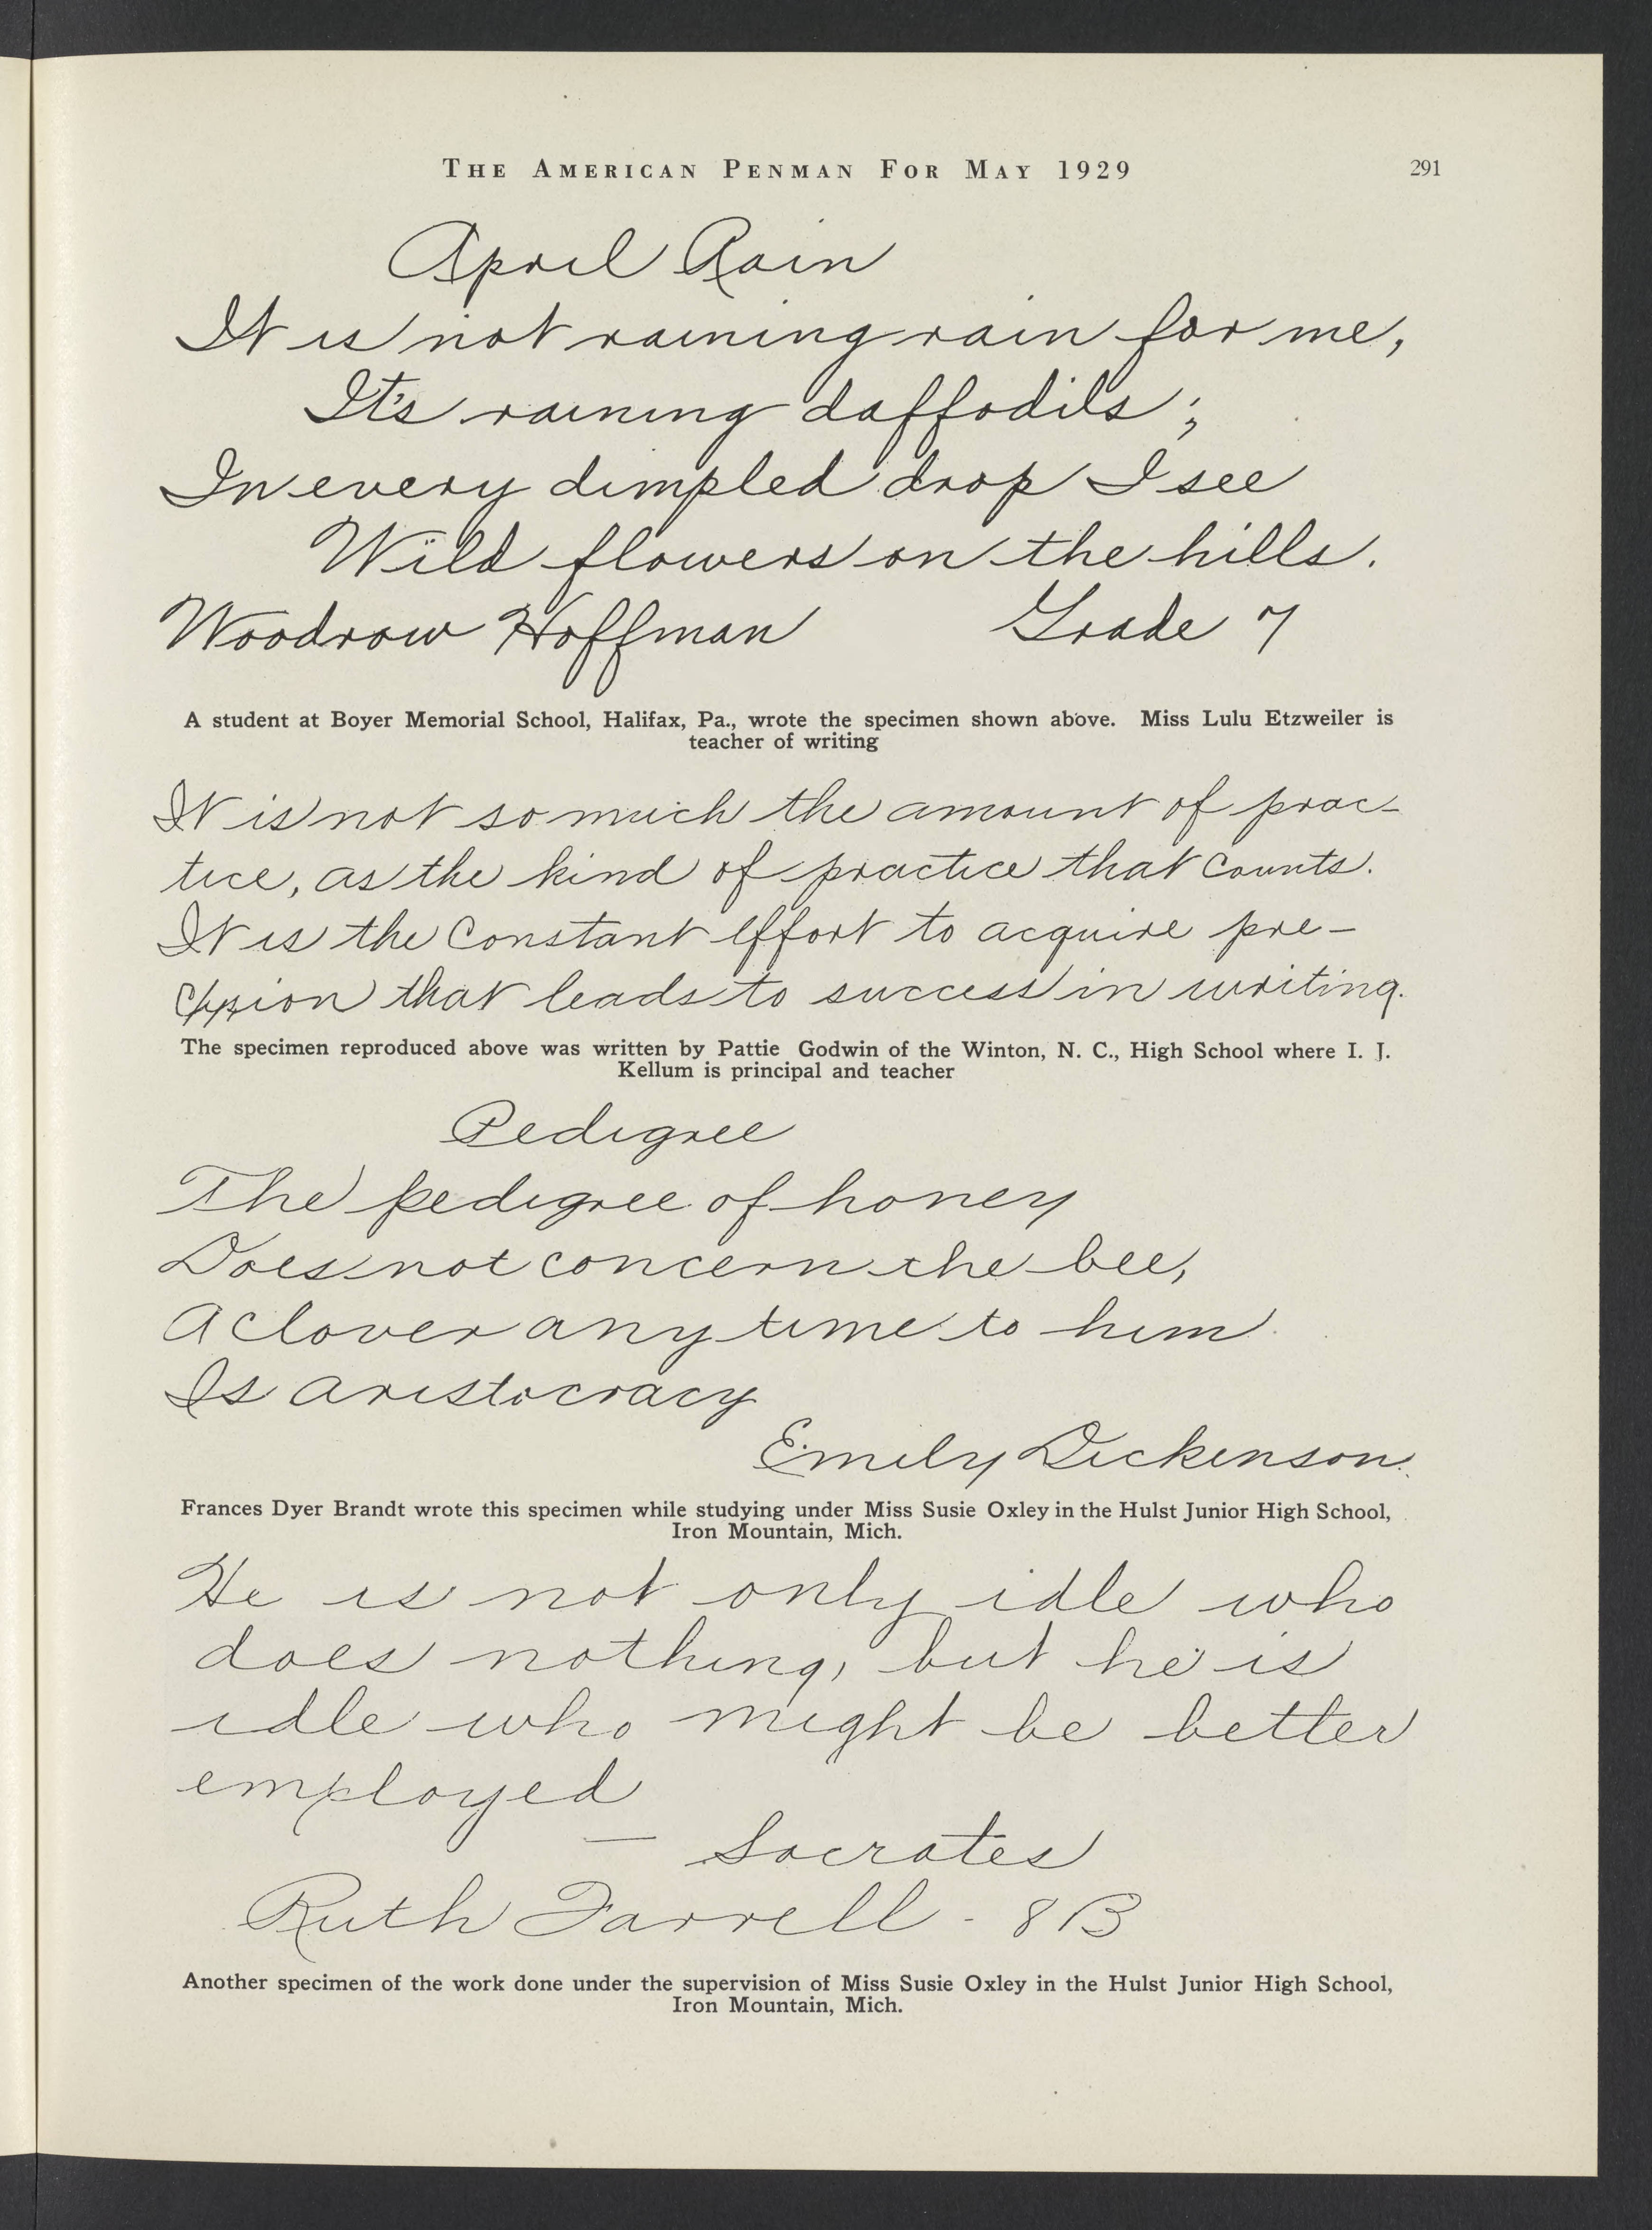 THE AMERICAN PENMAN FOR MAY 1929 291
April Rain
It is not raining rain for me,
It's raining daffodils;
In every dimpled drop I see
Wild flowers on the hills.
Woodrow Hoffman Grade 7
A student at Boyer Memorial School, Halifax, Pa., wrote the specimen shown above. Miss Lulu Etzweiler is
teacher of writing
It is not so much the amount of prac-
tice, as the kind of practice that counts.
It is the constant effort to acquire pre-
cision that leads to success in writing.
The specimen reproduced above was written by Pattie Godwin of the Winton, N. C., High School where I. J.
Kellum is principal and teacher
Pedigree
The pedigree of honey
Does not concern the bee,
A clover any time to him
Is aristocracy
Emily Dickenson.
Frances Dyer Brandt wrote this specimen while studying under Miss Susie Oxley in the Hulst Junior High School,
Iron Mountain, Mich.
He is not only idle who
does nothing, but he is
idle who might be better
employed
— Socrates
Ruth Farrell - 8B
Another specimen of the work done under the supervision of Miss Susie Oxley in the Hulst Junior High School,
Iron Mountain, Mich.